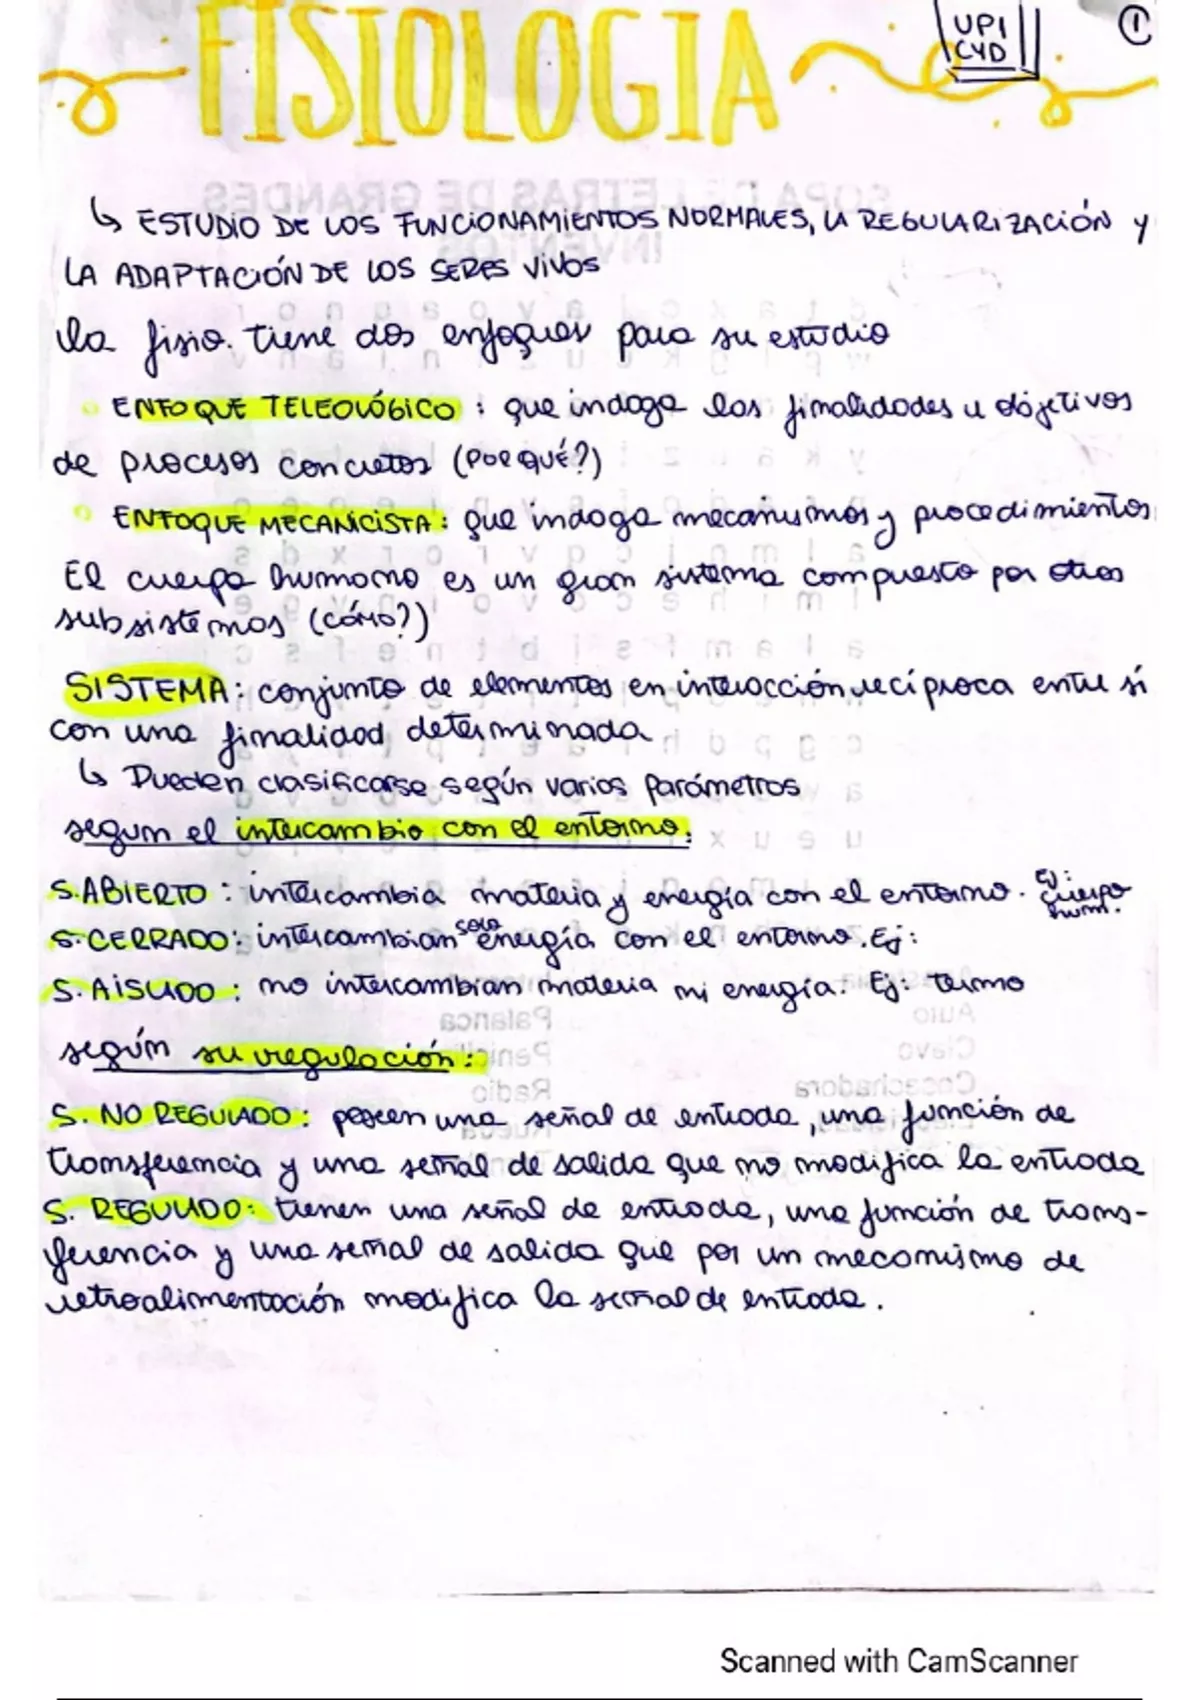 FISIOLOGIA
UPI
CYD
1
↳ ESTUDIO DE LOS FUNCIONAMIENTOS NORMALES, LA REGULARIZACIÓN y
LA ADAPTACIÓN DE LOS SERES VIVOS
la fisio. tiene dos enfoques para su estudio
ENFOQUE TELEOLÓGICO : que indaga las finalidades u objetivos
de procesos concretos (POR QUÉ?)
ENFOQUE MECANICISTA : que indaga mecanismos y procedimientos
El cuerpo humano es un gran sistema compuesto por otros
subsistemas (CÓMO?)
SISTEMA: conjunto de elementos en interacción recíproca entre sí
con una finalidad determinada
↳ Pueden clasificarse según varios parámetros
segun el intercambio con el entorno:
S.ABIERTO : intercambia materia y energía con el entorno. Ej: cuerpo hum.
S.CERRADO: intercambian solo energía con el entorno. Ej:
S. AISLADO : no intercambian materia ni energía. Ej: termo
según su regulación:
S. NO REGULADO : poseen una señal de entrada, una función de
transferencia y una señal de salida que no modifica la entrada
S. REGULADO: tienen una señal de entrada, una función de trans-
ferencia y una señal de salida que por un mecanismo de
retroalimentación modifica la señal de entrada.
Scanned with CamScanner